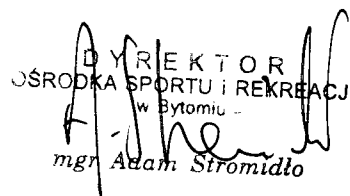 DYREKTOR
OŚRODKA SPORTU i REKREACJI
w Bytomiu
mgr Adam Stromidło